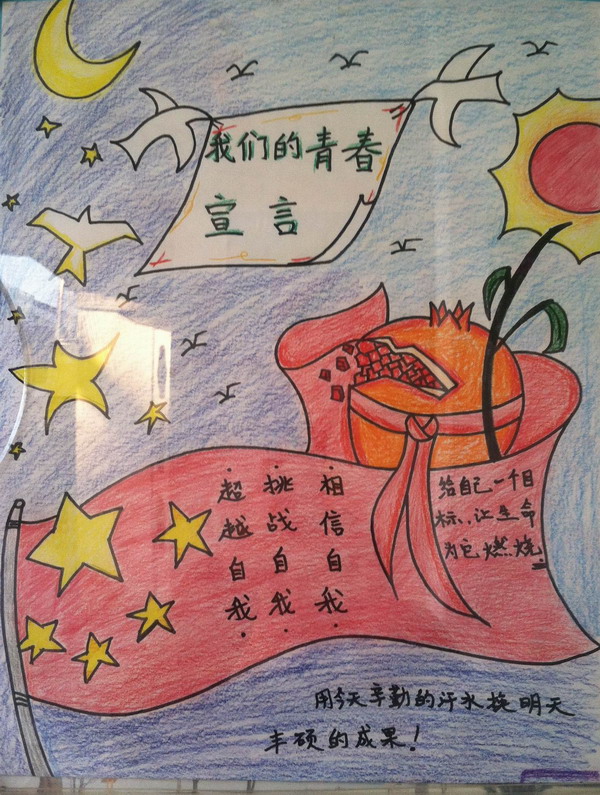 我们的青春
宣言
相信自我
挑战自我
超越自我
给自己一个目
标、让生命
为它燃烧
用今天辛勤的汗水换明天
丰硕的成果！